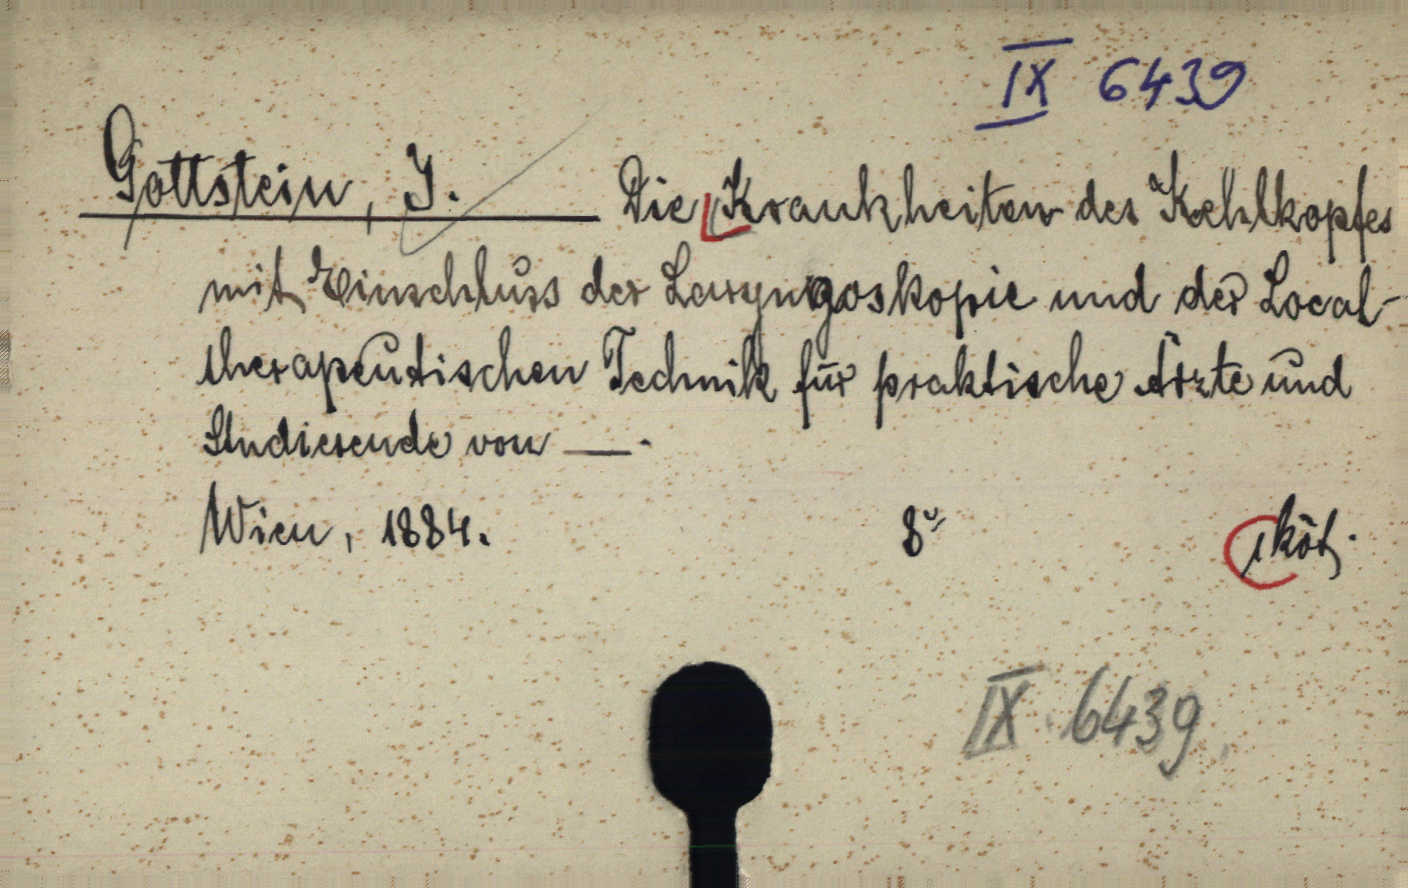 IX 6439
Gottstein, J. Die Krankheiten des Kehlkopfes
mit Einschluss der Laryngoskopie und der Local-
therapeutischen Technik für praktische Ärzte und
Studierende von —.
Wien, 1884. 8° 1 köt.
IX 6439